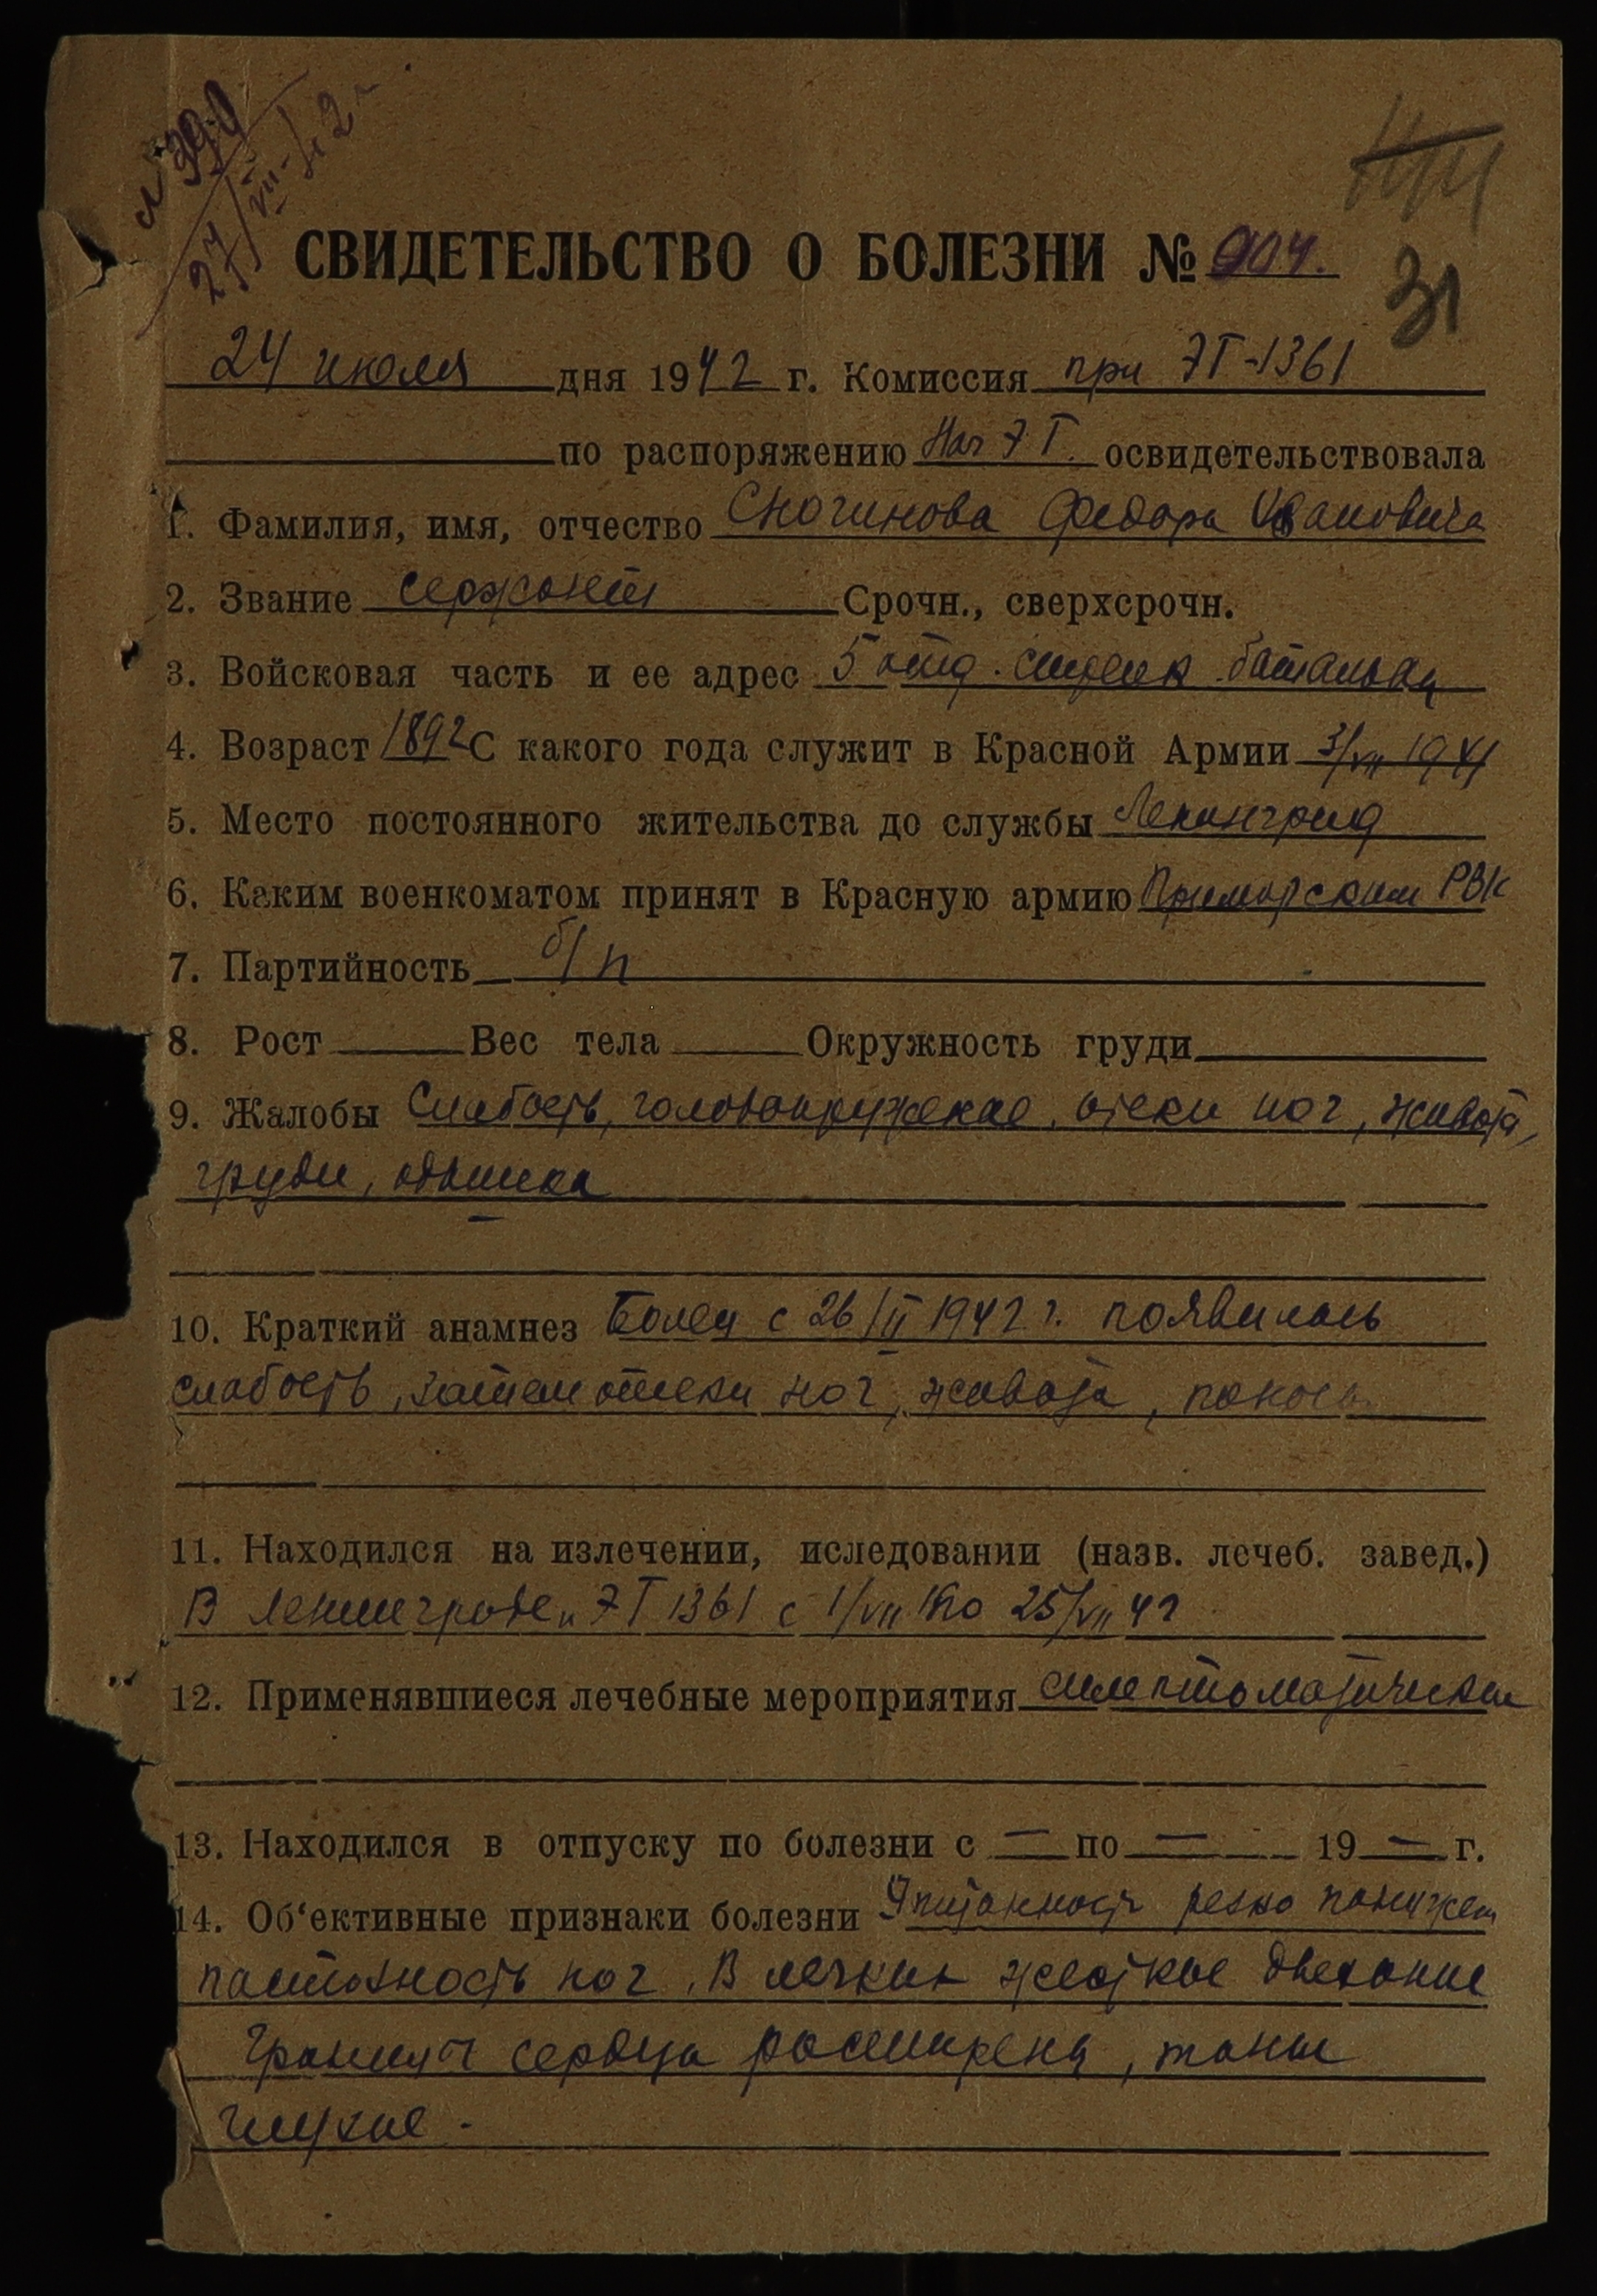 № 390
27/VII-42 г
31
СВИДЕТЕЛЬСТВО О БОЛЕЗНИ № 904.
24 июля дня 1942 г. Комиссия при ЭГ-1361
по распоряжению Нач ЭГ. освидетельствовала
1. Фамилия, имя, отчество Сногинова Федора Ивановича
2. Звание сержант Срочн., сверхсрочн.
3. Войсковая часть и ее адрес 5 отд. стрелк. батальон
4. Возраст 1892 С какого года служит в Красной Армии 3/VII 1941
5. Место постоянного жительства до службы Ленинград
6. Каким военкоматом принят в Красную армию Приморским РВК
7. Партийность б/п
8. Рост Вес тела Окружность груди
9. Жалобы Слабость, головокружение, отеки ног, живота,
груди, одышка
10. Краткий анамнез Болен с 26/II 1942 г. появилась
слабость, затем отеки ног, живота, понос
11. Находился на излечении, иследовании (назв. лечеб. завед.)
В Ленинграде ЭГ 1361 с 1/VII по 25/VII 42
12. Применявшиеся лечебные мероприятия симптоматически
13. Находился в отпуску по болезни с — по — 19 — г.
14. Об'ективные признаки болезни Упитанность резко понижен
пастозность ног. В легких жесткое дыхание
Границы сердца расширены, тоны
глухие.